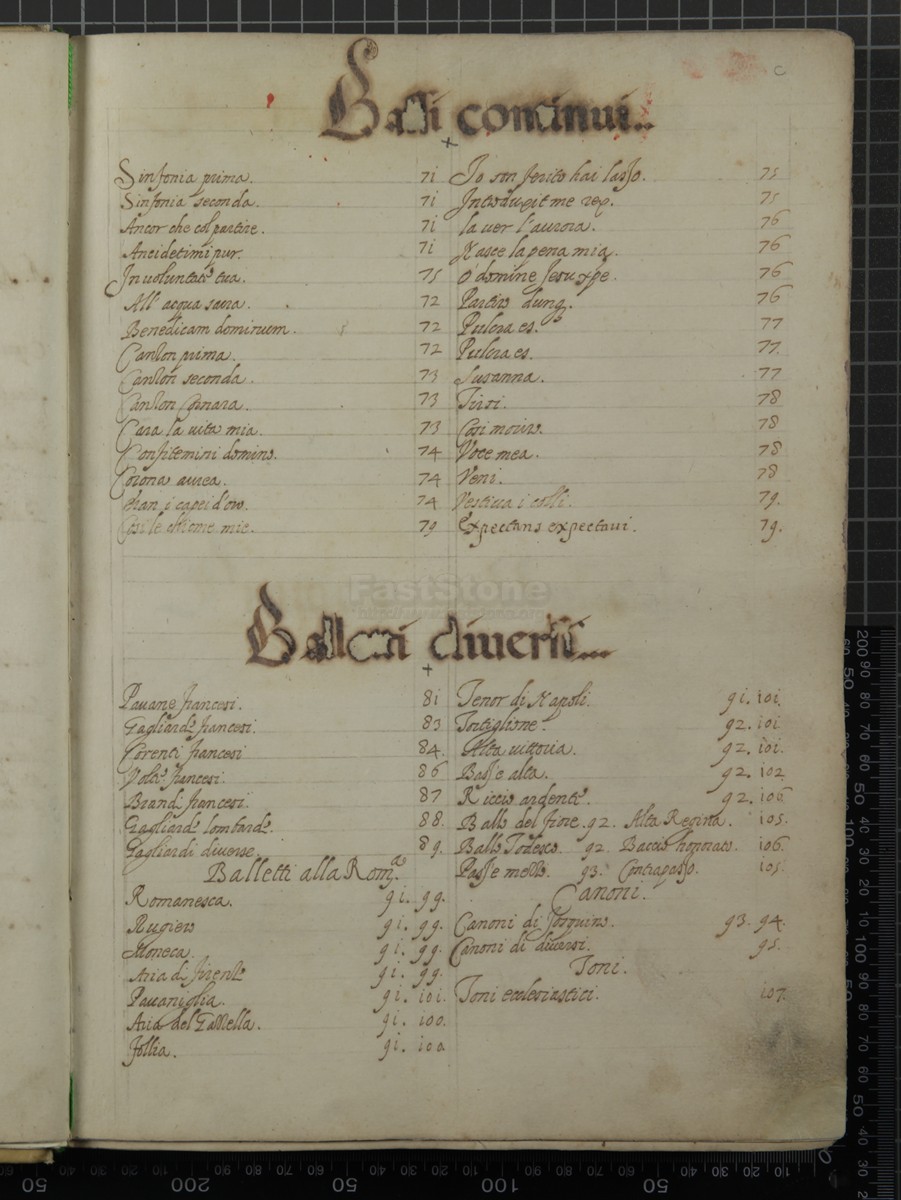 C
Bassi continui...
Sinfonia prima. 71
Sinfonia seconda. 71
Ancor che col partire. 71
Ancidetimi pur. 71
In voluntate tua. 75
All' acqua sacra. 72
Benedicam dominum. 72
Canzon prima. 72
Canzon seconda. 73
Canzon Cornara. 73
Cara la vita mia. 73
Confitemini domino. 74
Corona aurea. 74
Eran i capei d'oro. 74
Così le chiome mie. 79
Io son ferito hai lasso. 75
Introduxit me rex. 75
la ver l'aurora. 76
Nasce la pena mia. 76
O' domine Jesu xpe. 76
Partirò dunq. 76
Pulcra es. 77
Pulcra es. 77.
Susanna. 77
Tirsi. 78
Così moirò. 78
Voce mea. 78
Veni. 78
Vestiva i colli. 79.
Expectans expectavi. 79.
FastStone
Balletti diversi...
Pavane francesi. 81
Gagliarde francesi. 83
Corenti francesi 84.
Volte francesi. 86
Brandi francesi. 87
Gagliarde lombarde. 88.
Gagliardi diverse. 89.
Balletti alla Romana.
Romanesca. 91. 99.
Rugiero 91. 99.
Moneca. 91. 99.
Aria di firenze 91. 99.
Pavaniglia. 91. 101.
Aria del Gazzella. 91. 100.
follia. 91. 100
Tenor di Napoli. 91. 101.
Tortiglione. 92. 101.
Alta vittoria. 92. 101.
Bass'e alta. 92. 102
Riccio ardente. 92. 106
Ballo del fiore. 92. Alta Regina. 105.
Ballo Todesco. 92. Baccio honorato. 106.
Pass'e mezzo. 93. Contrapasso. 105.
Canoni.
Canoni di Josquino. 93. 94.
Canoni di diversi. 95.
Toni.
Toni ecclesiastici. 107.